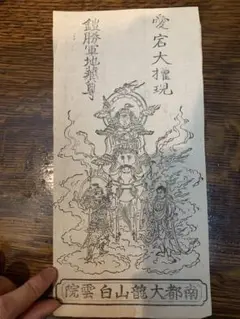 愛宕大権現
鎧勝軍地蔵尊
南都大龍山白雲院